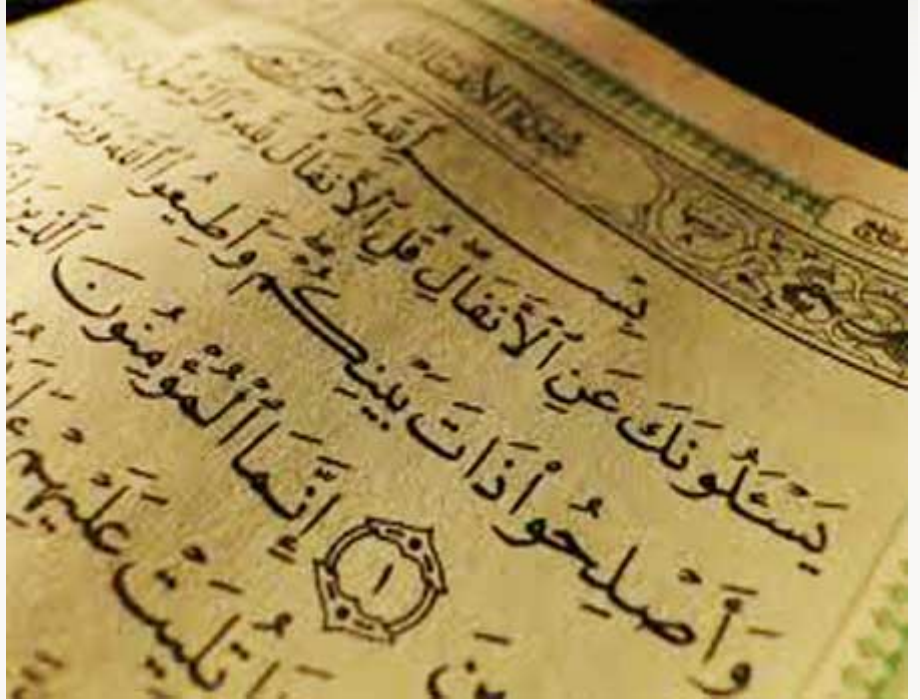 سورة الأنفال
بِسْمِ ٱللَّهِ ٱلرَّحْمَٰنِ ٱلرَّحِيمِ
يَسْـَٔلُونَكَ عَنِ ٱلْأَنفَالِ قُلِ ٱلْأَنفَالُ لِلَّهِ وَٱلرَّسُولِ
وَأَصْلِحُوا۟ ذَاتَ بَيْنِكُمْ وَأَطِيعُوا۟ ٱللَّهَ وَرَسُولَهُ
ينَ ١ إِنَّمَا ٱلْمُؤْمِنُونَ ٱلَّذِينَ
تُلِيَتْ عَلَيْهِمْ